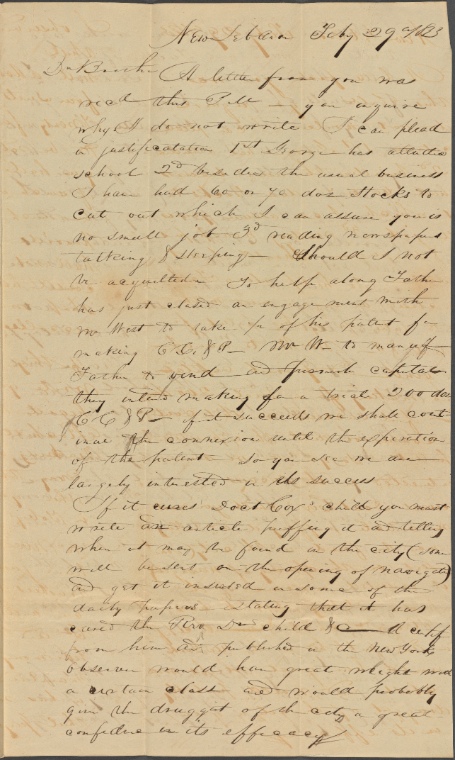 New Lebanon Feby 29
Dr Brother A letter from you was
read this P.M — you inquire
why I do not write I can plead
in justification 1st George has attended
school 2d besides the usual business
I have had 60 or 70 doz Stocks to
cut out which I can assure you is
no small job 3d reading newspapers
talking & sleeping — Should I not
be acquitted — To help along Father
has just closed an engagement with
Mr West to take of his patent for
making C.C. & P — Mr W — to manuf
Father to vend and furnish capital
they intend making for a trial 200 doz
C C & P — if it succeeds we shall cont
inue the connexion until the expiration
of the patent So you see we are
largely interested in its success
If it cures Doct Cox's child you must
write an article puffing it and telling
when it may be found in the city (some
will be sent on the opening of navigation)
and get it inserted in some of the
daily papers stating that it has
cured the Rev Drs child &c — A certif
from him and published in the New York
observer would have great weight with
a certain class and would probably
give the druggist of the city a great
confidence in its efficacy